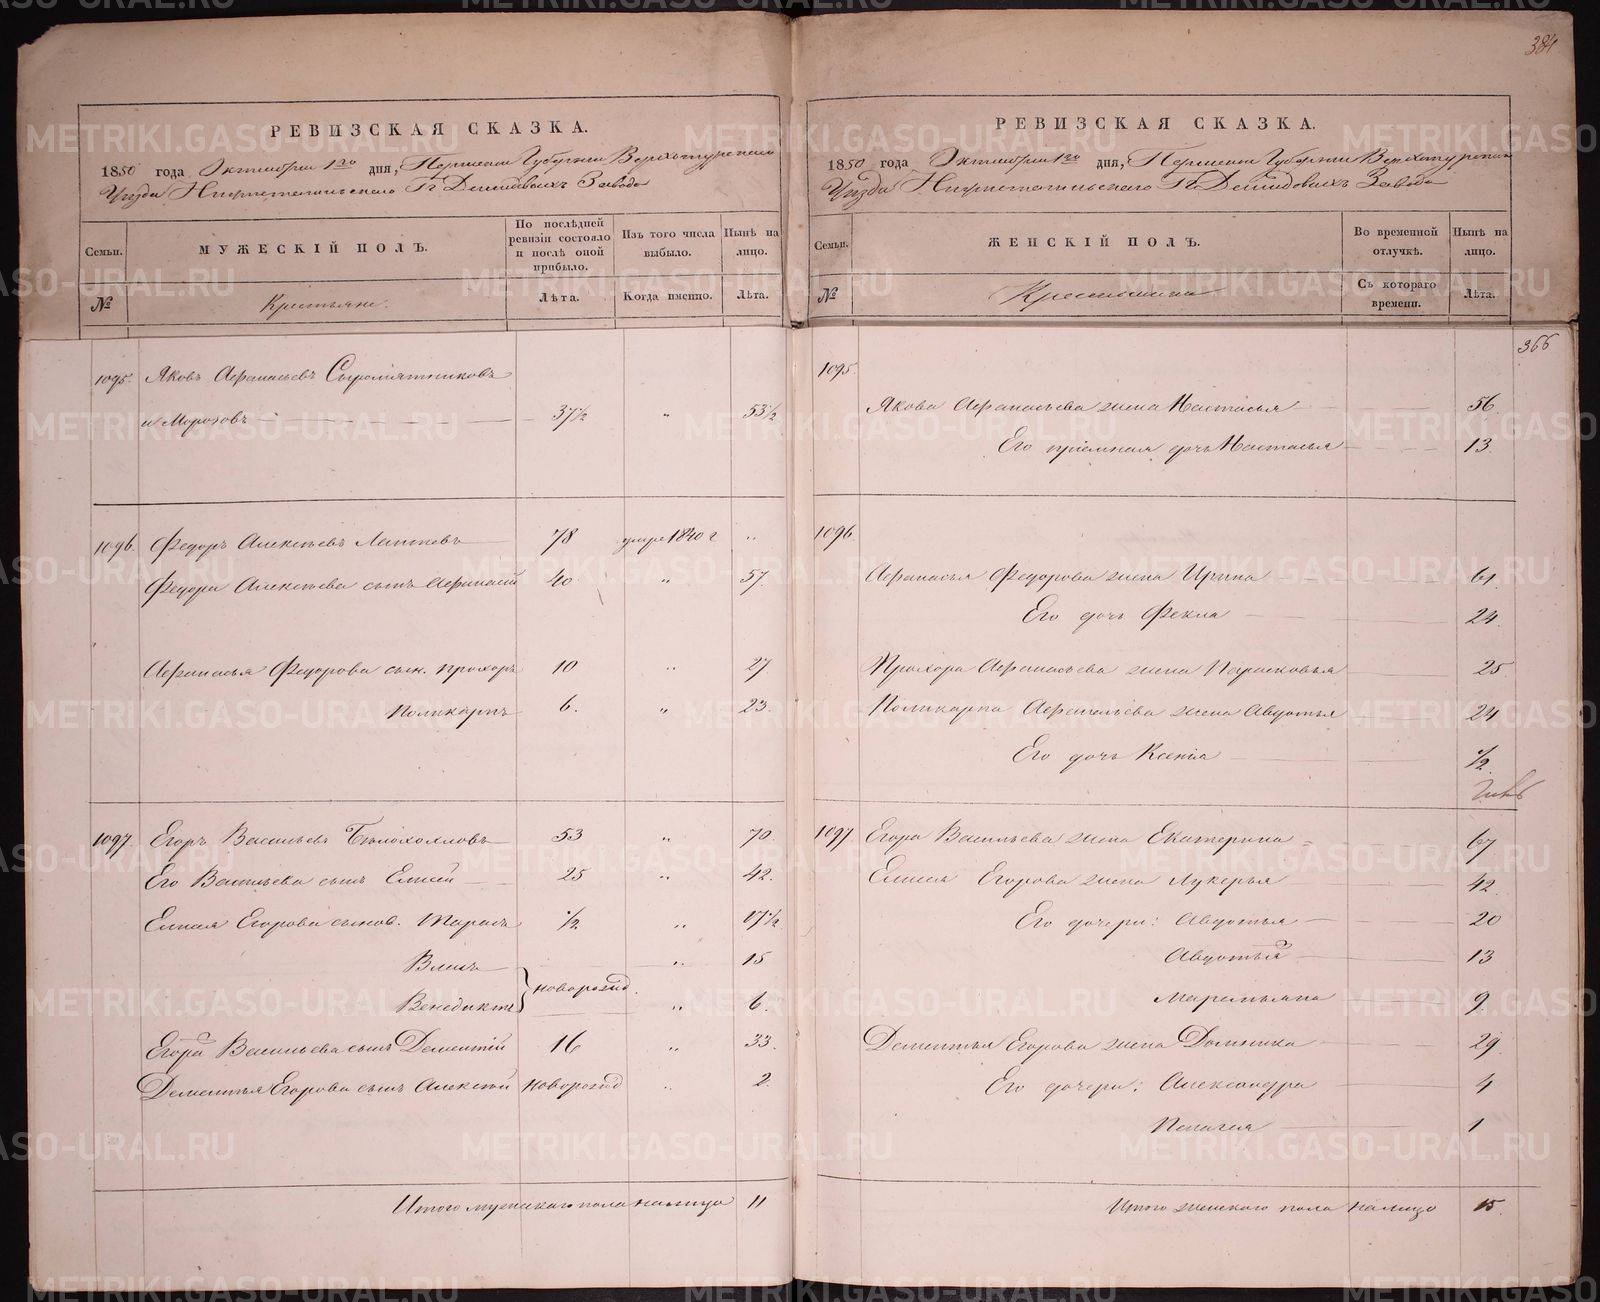 384
РЕВИЗСКАЯ СКАЗКА.
1850 года Октября 1го дня, Пермской Губернии Верхотурскаго
Уѣзда Нижнетагильскаго Гг. Демидовыхъ Завода
Семьи.
МУЖЕСКІЙ ПОЛЪ.
По послѣдней ревизіи состояло и послѣ оной прибыло.
Изъ того числа выбыло.
Нынѣ на лицо.
№
Крестьяне.
Лѣта.
Когда именно.
Лѣта.
1095. Яковъ Афанасьевъ Сыромятниковъ
и Морозовъ 37½ " 53½
1096. Федоръ Алексѣевъ Лаптевъ 78 умре 1840 г "
Федора Алексѣева сынъ Афанасій 40 " 57.
Афанасья Федорова сын. Прохоръ 10 " 27
Поликарпъ 6. " 23.
1097. Егоръ Васильевъ Бѣлохохловъ 53 " 70.
Его Васильева сынъ Елисей 25 " 42.
Елисея Егорова сынов. Тарасъ ½ " 17½
Власъ " 15
новорожд.
Венедиктъ " 6.
Егора Васильева сынъ Дементій 16 " 33.
Дементья Егорова сынъ Алексѣй новорожд " 2.
Итого мужескаго пола налицо 11
РЕВИЗСКАЯ СКАЗКА.
1850 года Октября 1го дня, Пермской Губерніи Верхотурскаго
Уѣзда Нижнетагильскаго Гг. Демидовыхъ Завода
Семьи.
ЖЕНСКІЙ ПОЛЪ.
Во временной отлучкѣ.
Нынѣ на лицо.
№
Съ котораго времени.
Лѣта.
366
1095.
Якова Афанасьева жена Настасья 56.
Его пріемная дочь Настасья 13.
1096.
Афанасья Федорова жена Ирина 61.
Его дочь Фекла 24.
Прохора Афанасьева жена Парасковья 25.
Поликарпа Афанасьева жена Авдотья 24
Его дочь Ксенія ½.
1097. Егора Васильева жена Екатерина 67
Елисея Егорова жена Лукерья 42.
Его дочери: Авдотья 20
Авдотья 13
Маремьяна 9.
Дементья Егорова жена Домника 29.
Его дочери: Александра 4
Пелагея 1
Итого женскаго пола налицо 15.
METRIKI.GASO-URAL.RU